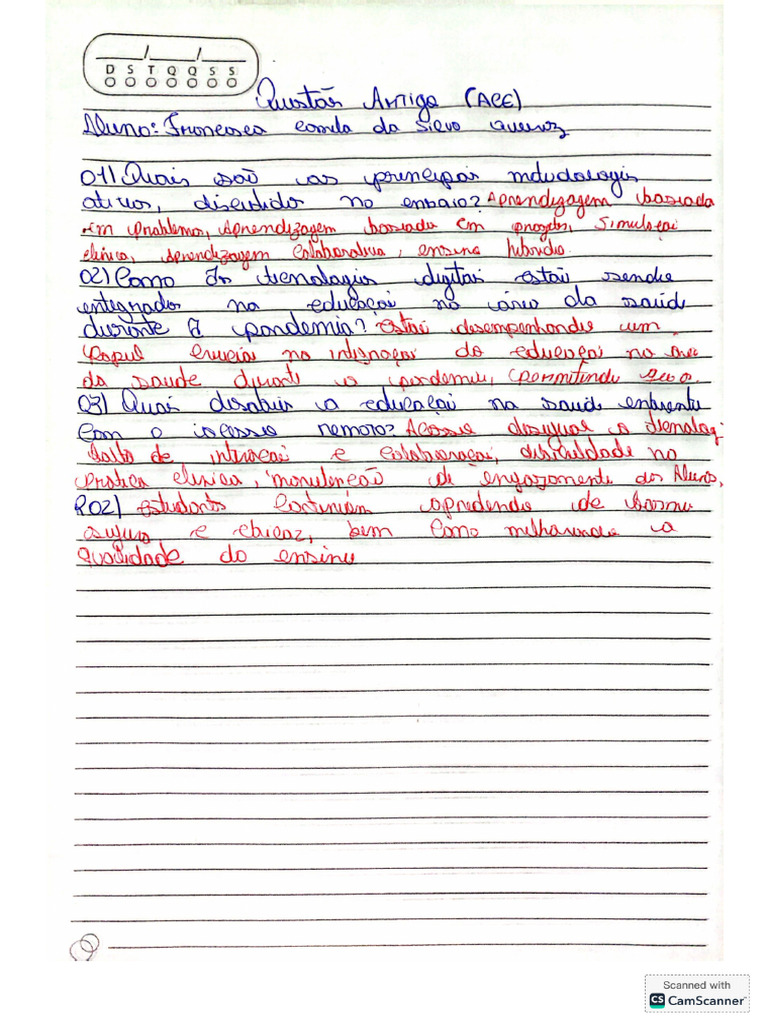 D S T Q Q S S
Questão Artigo (ACE)
Aluno: Francisca Camila da Silva Queiroz
01) Quais são as principais metodologis
ativas, discutidos no ensaio? Aprendizagem basiada
em problemas, Aprendizagem basiada em projetos, Simulaçai
clinica, Aprendizagem Colaborativa, ensino hibrido.
02) Como As tecnologias digitais estai sendo
entegrados na educaçai na área da saúde
durante A pandemia? Estai desempenhando um
Papel crucias na integraçai da educaçai na area
da saude durante a pandemia, permitindo que os
03) Quais desafios a educaçai na saude enfrenta
Com o acesso remoto? Acesso desigual a tecnologi
falta de interaçai e Colaboraçai, dificuldade na
pratica clinica, manutenção de engajamento dos Alunos,
R02) estudantes Continuem aprendendo de forma
segura e eficaz, bem Como melhorando a
qualidade do ensino
Scanned with
CS CamScanner